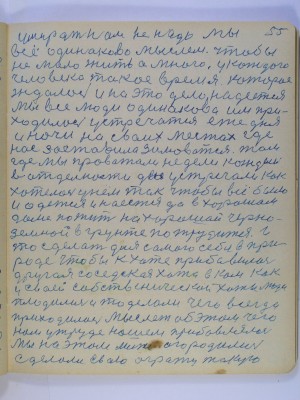 55
умират нам не надь мы
всё одинаково мыслем. чтобы
не мало жить а много, у каждого
человека такое время которое
ждалося и на это дело, надеются
мы все люди одинакова им при-
ходилося устречатся ежедня
и ночи на своих местах где
нас заставила зимоватся. там
где мы проватам недели кажды
в отделности дня устречали как
хотелося унем так чтобы всё было
и одется и наестся да в хорошом
доме пожит на хорошай черно-
земной в грунте потрудится. и
это сделат для самого себя в при-
роде чтобы к хате прибавилася
другая соседская хата в ком как
у своей собственической хаты люди
плодилися и то делали чего всегда
приходилося мыслет об этом чего
нам у труде нашем прибавлялося
мы на этом мите огородилися
сделали свою ограту такую